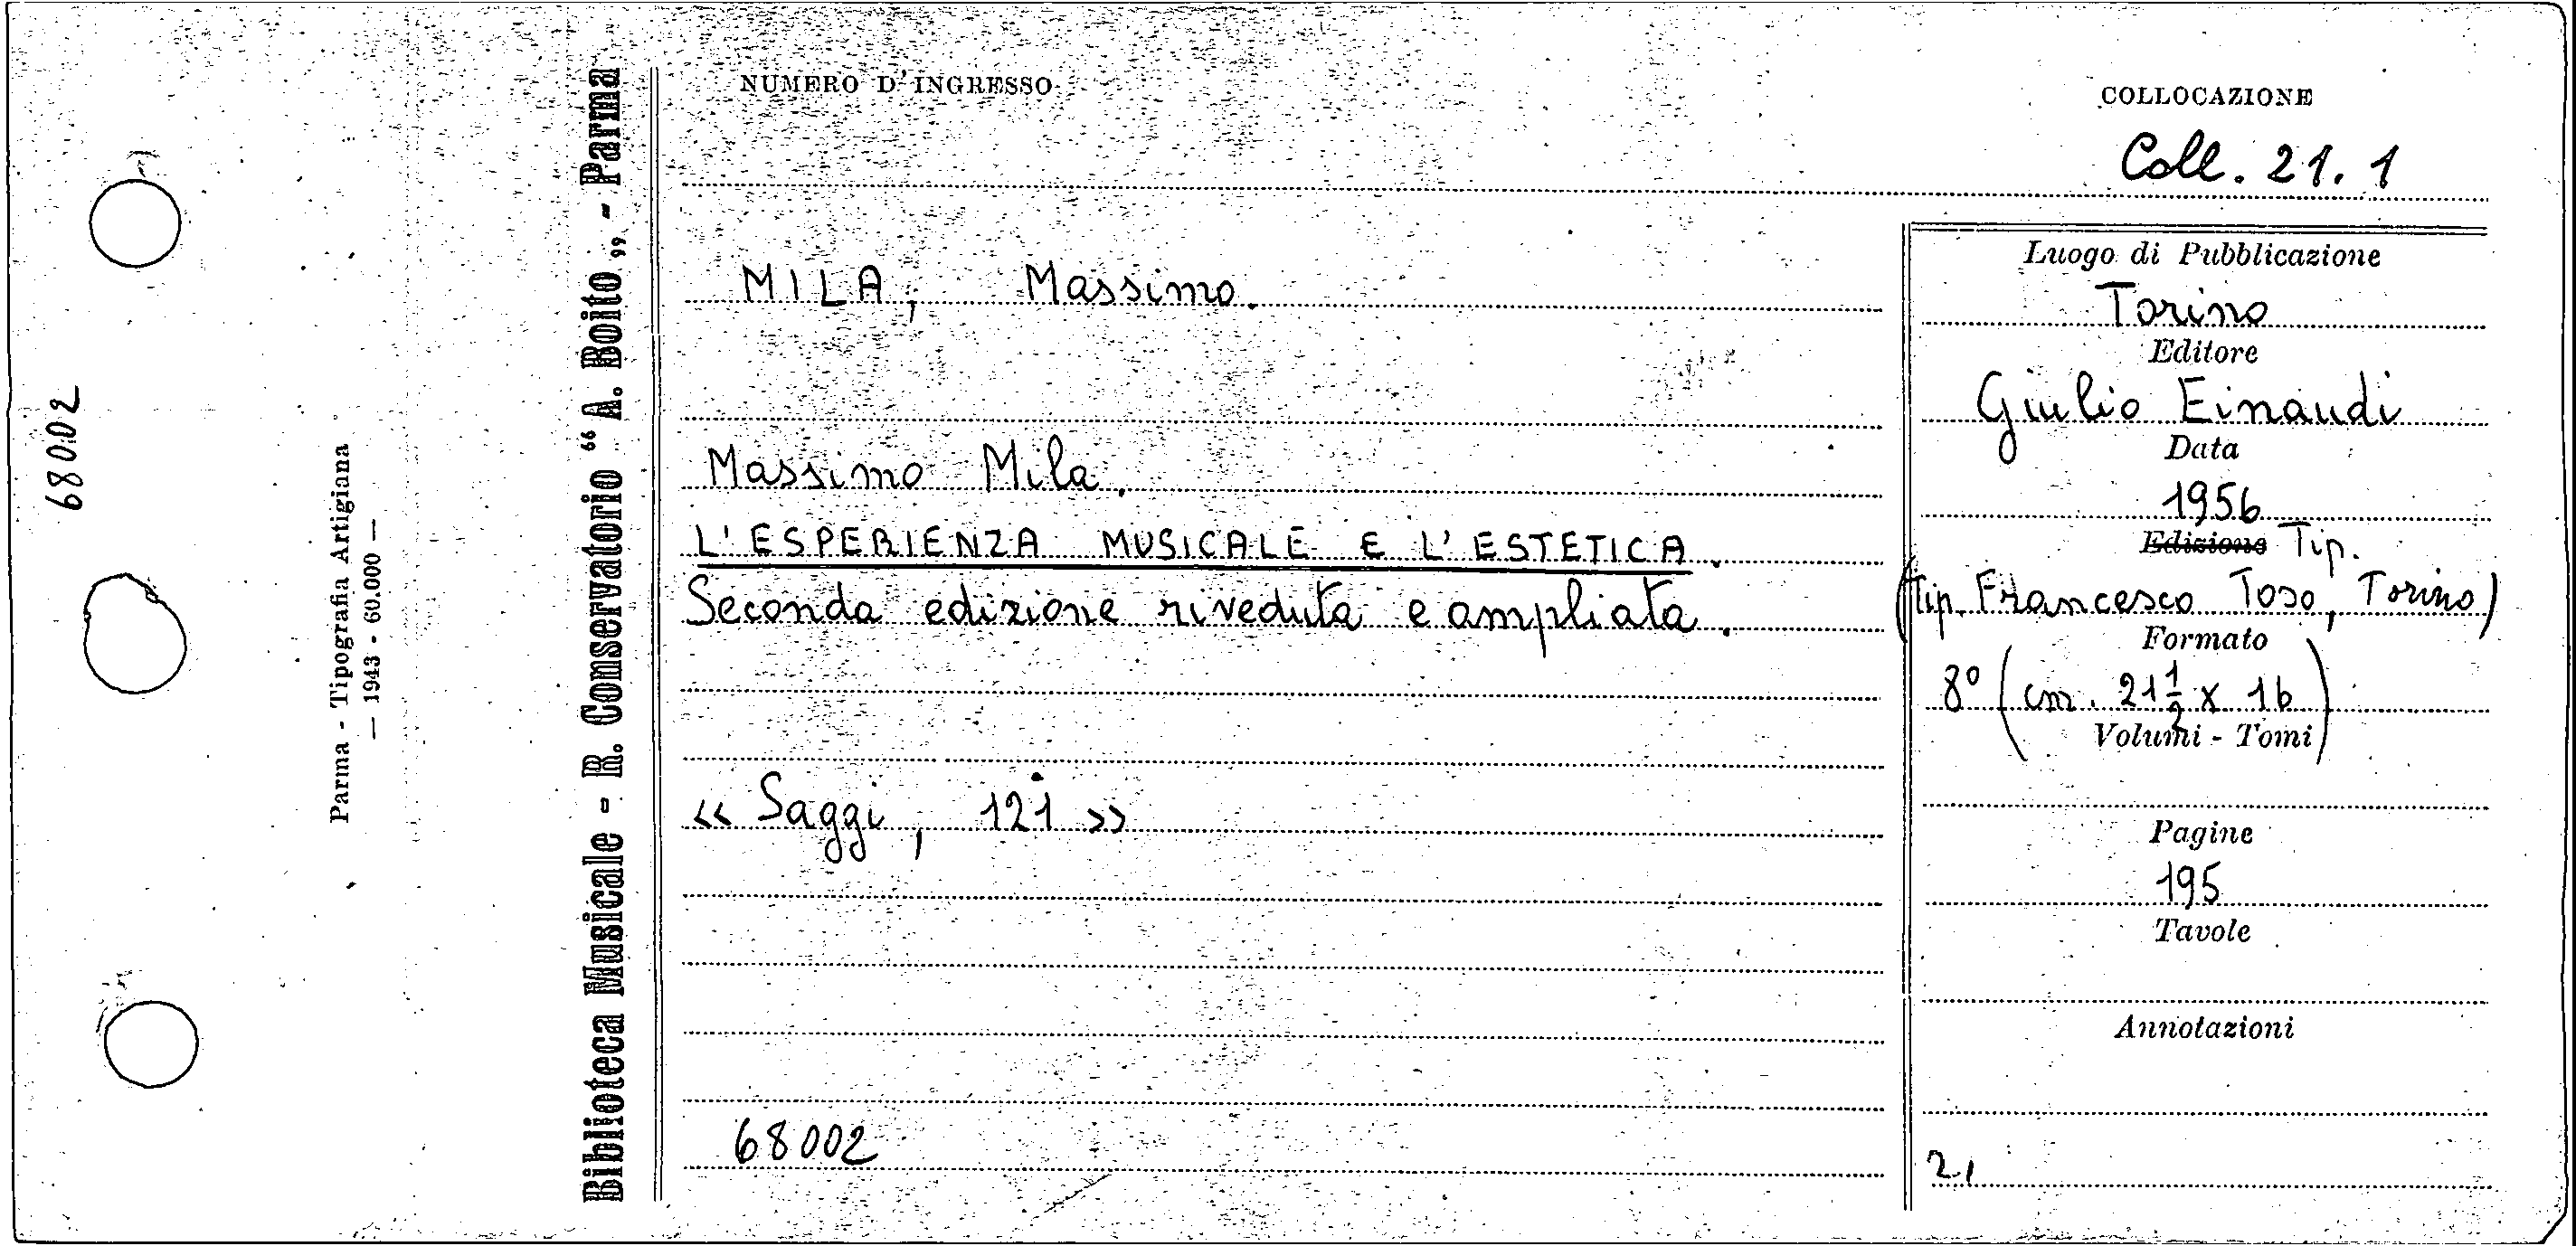 68002
Parma - Tipografia Artigiana
— 1943 - 60.000 —
Biblioteca Musicale - R. Conservatorio “A. Boito„ - Parma
NUMERO D'INGRESSO
COLLOCAZIONE
Coll. 21. 1
MILA, Massimo.
Massimo Mila.
L'ESPERIENZA MUSICALE E L'ESTETICA.
Seconda edizione riveduta e ampliata.
«Saggi, 121»
68002
Luogo di Pubblicazione
Torino
Editore
Giulio Einaudi
Data
1956
Edizione Tip.
(Tip. Francesco Toso, Torino)
Formato
8° (cm. 21 1/2 x 16)
Volumi - Tomi
Pagine
195
Tavole
Annotazioni